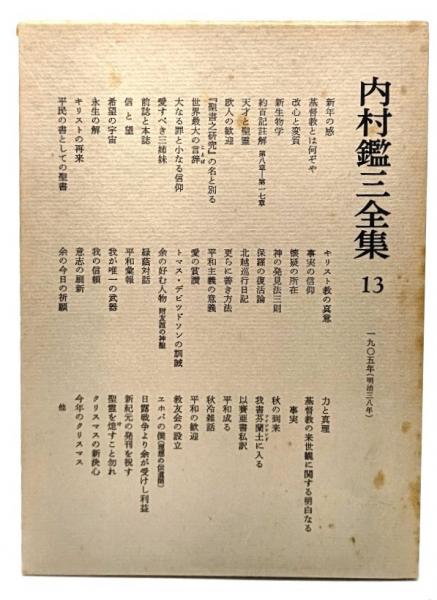 内村鑑三全集 13
一九〇五年(明治三八年)
新年の感
基督教とは何ぞや
改心と変質
新生物学
約百記註解 第八章―第一七章
天才と聖霊
欧人の歓迎
『聖書之研究』の名と別る
世界最大の言辞
大なる罪と小なる信仰
愛すべき三姉妹
前誌と本誌
信と望
希望の宇宙
永生の解
キリストの再来
平民の書としての聖書
キリスト教の真意
事実の信仰
懐疑の所在
神の発見法三則
保羅の復活論
北越巡行日記
更らに善き方法
平和主義の意義
愛の賞讃
トマス・デビッドソンの訓誡
余の好む人物 附友誼の神聖
緑蔭対話
平和彙報
我が唯一の武器
我の信頼
意志の刷新
余の今日の祈願
力と真理
基督教の来世観に関する明白なる
事実
秋の到来
我書芬蘭土に入る
以賽亜書私訳
平和成る
秋冷雑話
平和の歓迎
教友会の設立
エホバの僕(理想の伝道師)
日露戦争より余が受けし利益
新紀元の発刊を祝す
聖霊を熄すこと勿れ
クリスマスの新決心
今年のクリスマス
他